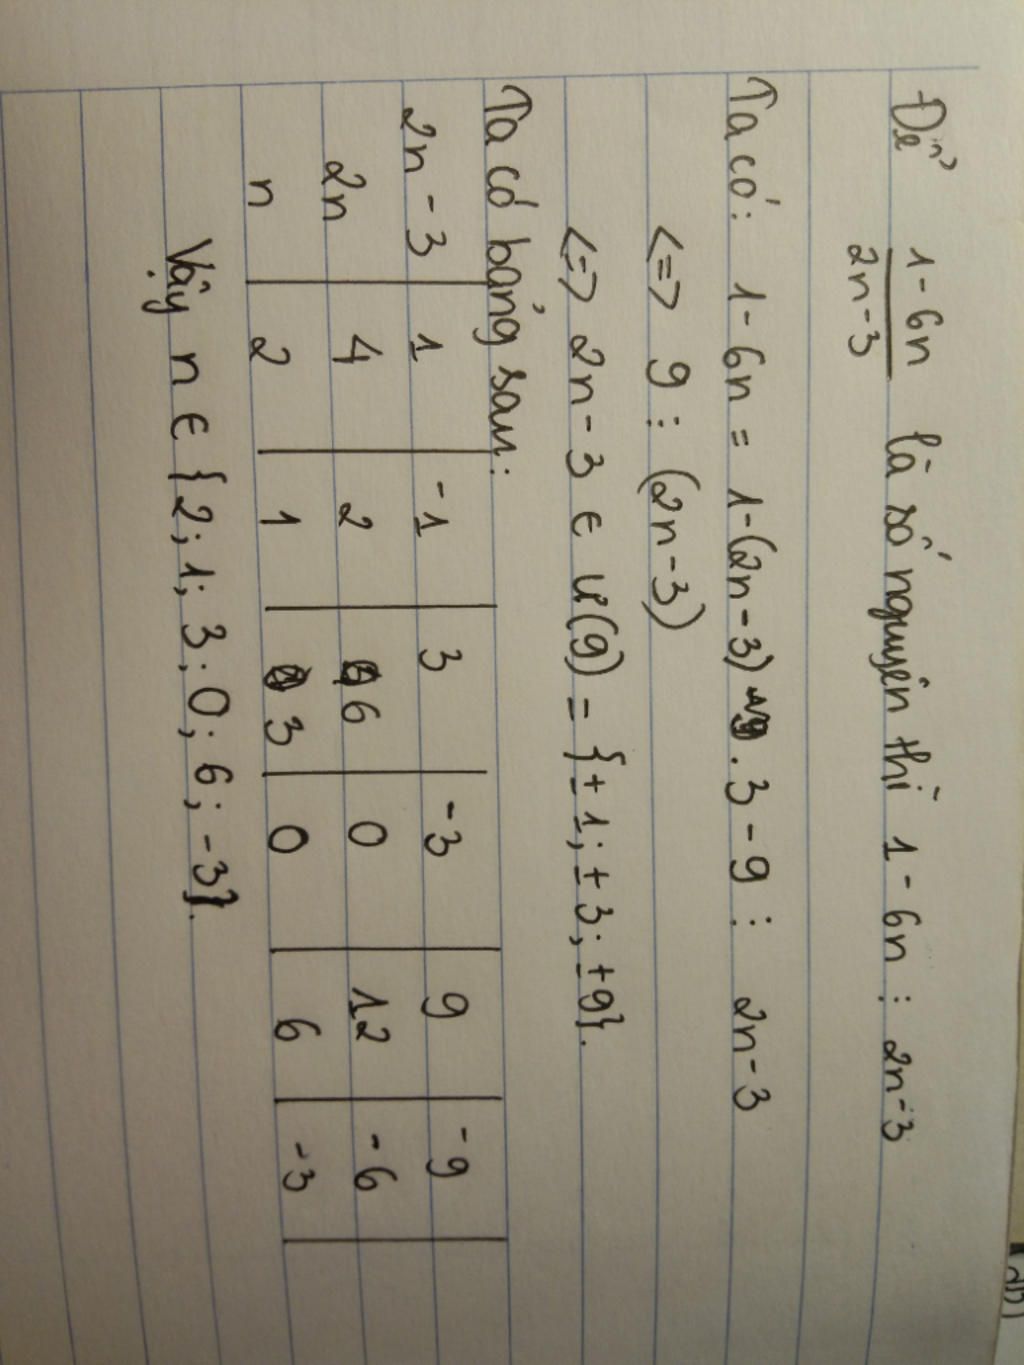 Để 1-6n/2n-3 là số nguyên thì 1-6n ⋮ 2n-3
Ta có: 1-6n = 1-(2n-3) . 3-9 ⋮ 2n-3
<=> 9 ⋮ (2n-3)
<=> 2n-3 ∈ Ư(9) = {±1; ±3; ±9}.
Ta có bảng sau:
2n-3 | 1 | -1 | 3 | -3 | 9 | -9
2n | 4 | 2 | 6 | 0 | 12 | -6
n | 2 | 1 | 3 | 0 | 6 | -3
Vậy n ∈ {2; 1; 3; 0; 6; -3}.